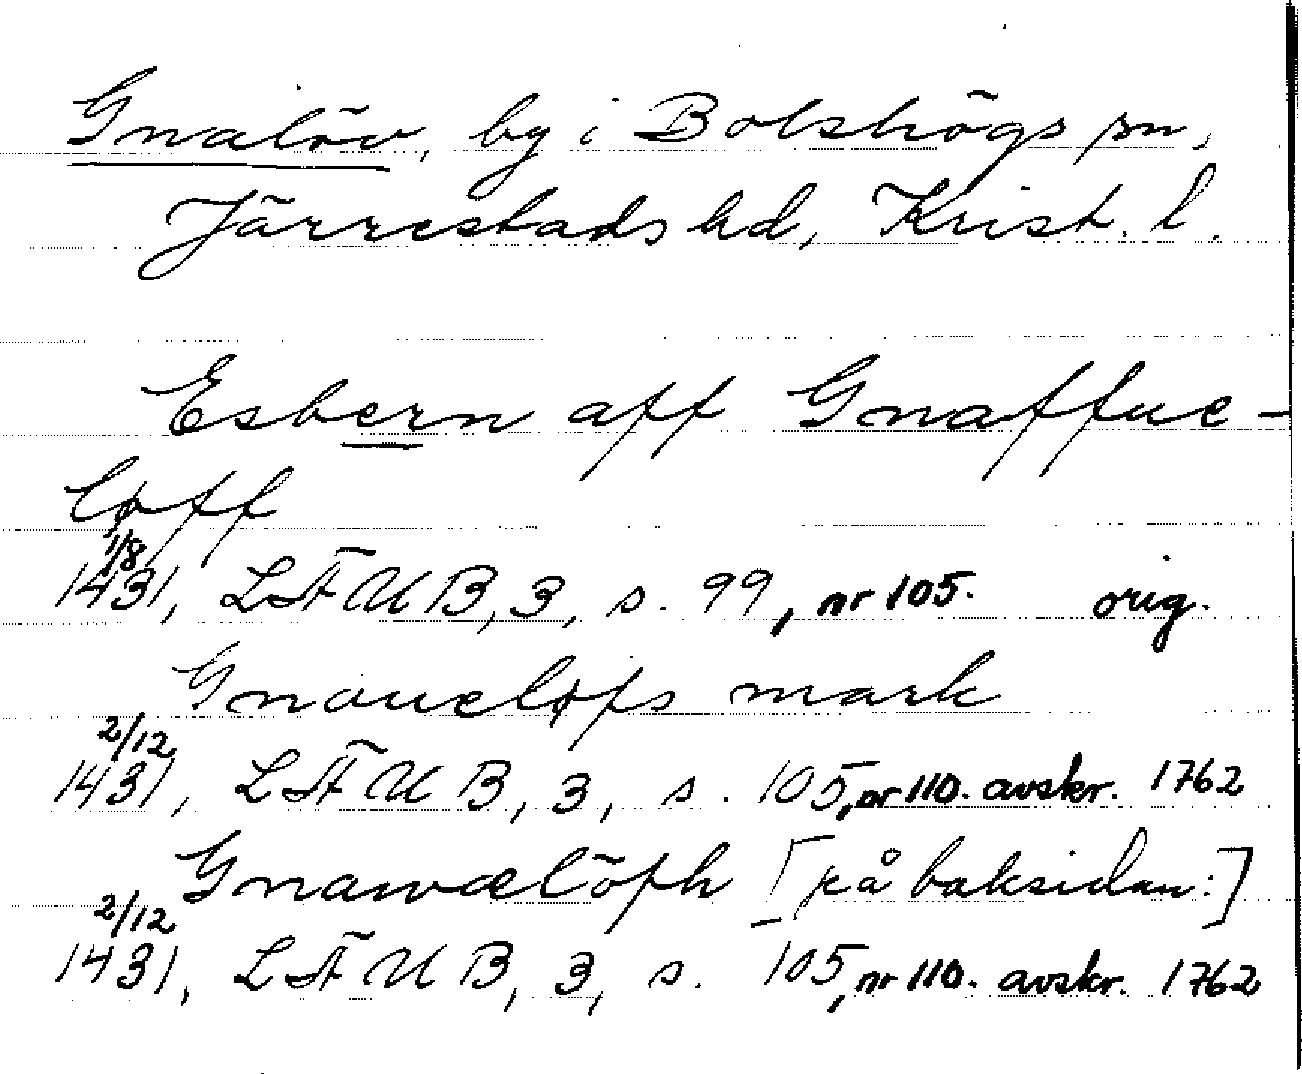 Gnalöv, by i Bolshögs sn,
Järrestads hd, Krist. l.
Esbern aff Gnaffue-
løff
1/8
1431, LÄUB, 3, s. 99, nr 105. orig.
Gnaueløfs mark
2/12
1431, LÄUB, 3, s. 105, nr 110. avskr. 1762
Gnawælöfh [på baksidan:]
2/12
1431, LÄUB, 3, s. 105, nr 110. avskr. 1762